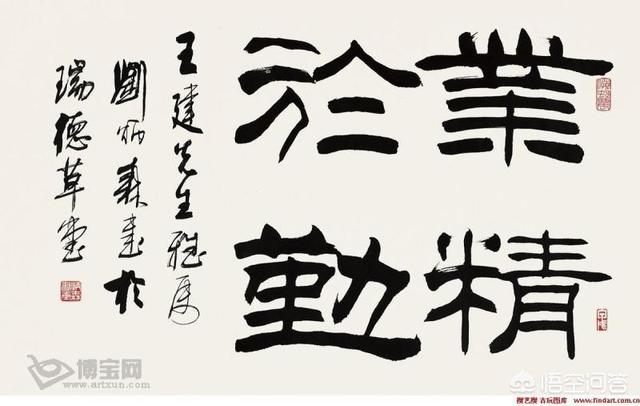 業精
於勤
王建先生雅属
劉炳森書於
瑞德草堂
博宝网
www.artxun.com
悟空问答
搜艺搜 古玩图库 www.findart.com.cn